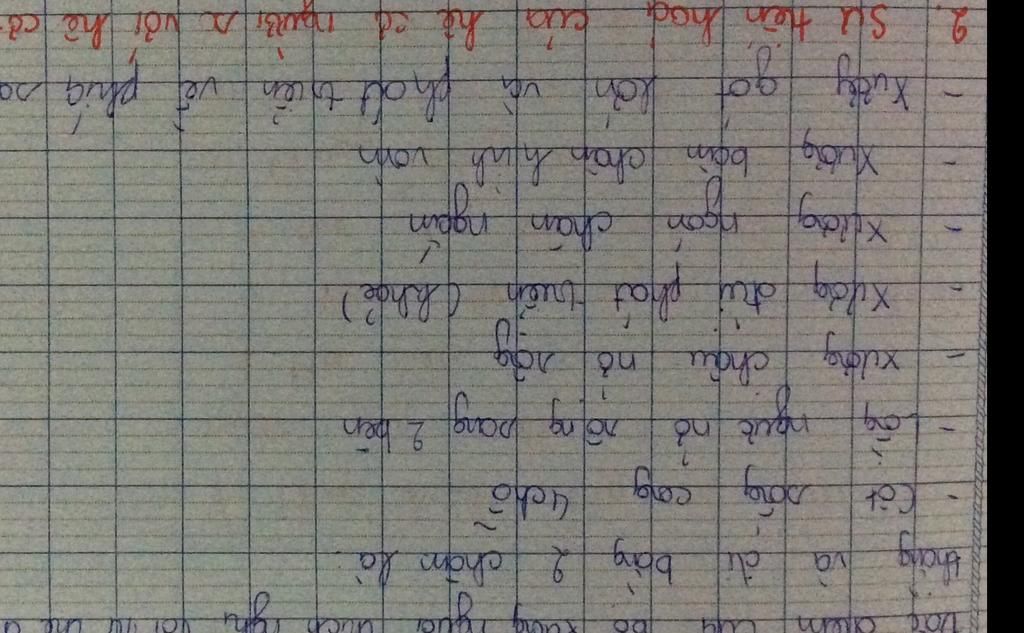 đặc điểm của bộ xương người thích nghi với tư thế đ
thẳng và đi bằng 2 chân là
- Cột sống cong 4 chỗ
- Lồng ngực nở rộng sang 2 bên
- Xương chậu nở rộng
- Xương đùi phát triển (khoẻ)
- Xương ngón chân ngắn
- Xương bàn chân hình vòm
- Xương gót lớn và phát triển về phía sa
2. Sự tiến hoá của hệ cơ người s với hệ cơ